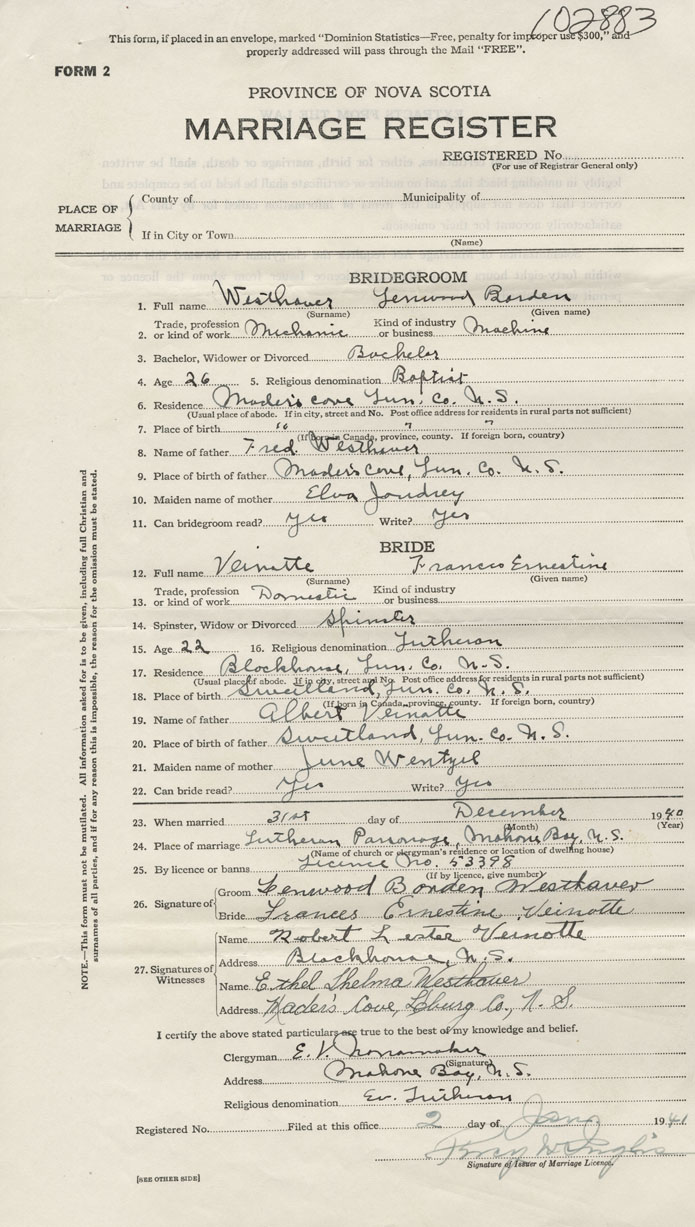 102883
This form, if placed in an envelope, marked "Dominion Statistics—Free, penalty for improper use $300," and
properly addressed will pass through the Mail "FREE".
FORM 2
PROVINCE OF NOVA SCOTIA
MARRIAGE REGISTER
REGISTERED No.
(For use of Registrar General only)
PLACE OF MARRIAGE
County of Municipality of
If in City or Town
(Name)
BRIDEGROOM
1. Full name Westhaver Lenwood Borden
(Surname) (Given name)
2. Trade, profession or kind of work Mechanic Kind of industry or business Machine
3. Bachelor, Widower or Divorced Bachelor
4. Age 26 5. Religious denomination Baptist
6. Residence Mader's Cove Lun. Co. N.S.
(Usual place of abode. If in city, street and No. Post office address for residents in rural parts not sufficient)
7. Place of birth " " "
(If born in Canada, province, county. If foreign born, country)
8. Name of father Fred Westhaver
9. Place of birth of father Mader's Cove, Lun. Co. N.S.
10. Maiden name of mother Elva Joudrey
11. Can bridegroom read? yes Write? Yes
BRIDE
12. Full name Veinotte Frances Ernestine
(Surname) (Given name)
13. Trade, profession or kind of work Domestic Kind of industry or business
14. Spinster, Widow or Divorced Spinster
15. Age 22 16. Religious denomination Lutheran
17. Residence Blockhouse, Lun. Co. N.S.
(Usual place of abode. If in city, street and No. Post office address for residents in rural parts not sufficient)
18. Place of birth Sweetland, Lun. Co. N.S.
(If born in Canada, province, county. If foreign born, country)
19. Name of father Albert Veinotte
20. Place of birth of father Sweetland, Lun. Co. N.S.
21. Maiden name of mother June Wentzel
22. Can bride read? Yes Write? Yes
23. When married 31st day of December 1940
(Month) (Year)
24. Place of marriage Lutheran Parsonage, Mahone Bay, N.S.
(Name of church or clergyman's residence or location of dwelling house)
25. By licence or banns Licence no. 53398
(If by licence, give number)
26. Signature of
Groom Lenwood Borden Westhaver
Bride Frances Ernestine Veinotte
27. Signatures of Witnesses
Name Robert Lester Veinotte
Address Blockhouse, N.S.
Name Ethel Thelma Westhaver
Address Mader's Cove, L'burg Co., N.S.
I certify the above stated particulars are true to the best of my knowledge and belief.
Clergyman E. V. Nonamaker
(Signature)
Address Mahone Bay, N.S.
Religious denomination Ev. Lutheran
Registered No. Filed at this office 2 day of Jany 1941
Signature of Issuer of Marriage Licence.
[SEE OTHER SIDE]
NOTE.—This form must not be mutilated. All information asked for is to be given, including full Christian and
surnames of all parties, and if for any reason this is impossible, the reason for the omission must be stated.